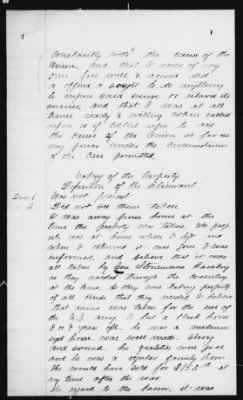 constantly with the cause of the
Union, and that I never of my
own free will & accord did
or offered or sought to do anything
to injure said cause or retard its
success and that I was at all
times ready & willing when called
upon or if called upon to aid
the cause of the Union so far as
my power under the circumstances
of the case permitted.
Taking of the Property
Deposition of the Claimant
Was not present.
Did not see them taken
I was away from home at the
time this property was taken. The prop
was at home when I left and
when I returned it was gone & was
informed, and believe that it was
all taken by Gen Stoneman Cavalry
as they raided through the country
at the time as they was taking property
of all kinds that they needed & believe
that mine was taken for the use of
the U.S. Army. I lost a
years old. he was a medium
sized horse, was well made. strong
and sound. his qualities were good
and he was a regular family horse
He would have sold for at
any time after the war.
In regard to the it was